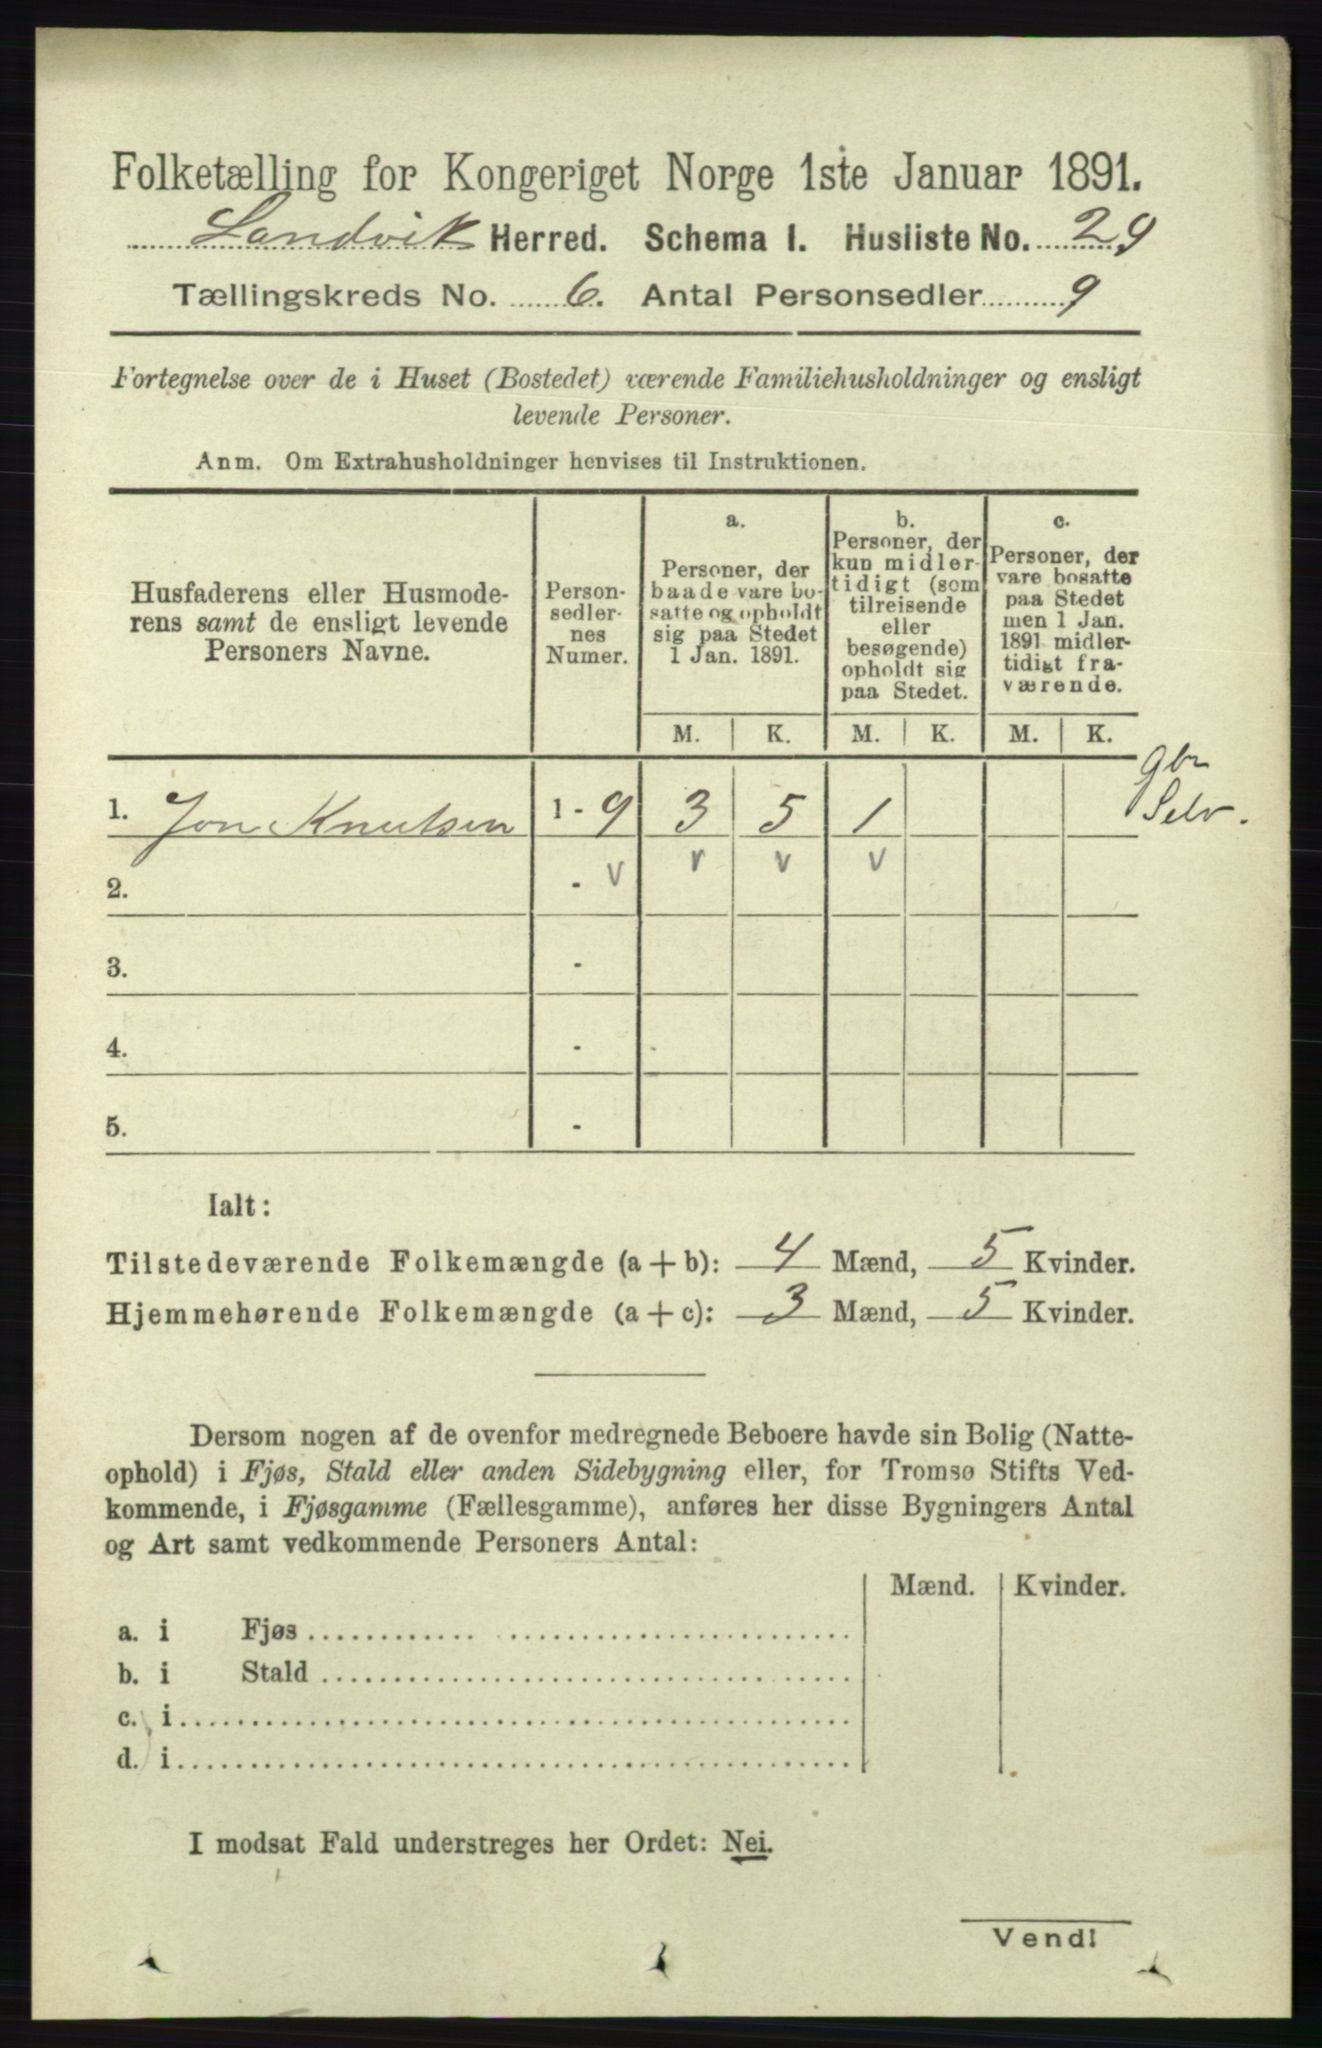 Folketælling for Kongeriget Norge 1ste Januar 1891.
Landvik Herred. Schema I. Husliste No. 29
Tællingskreds No. 6. Antal Personsedler 9
Fortegnelse over de i Huset (Bostedet) værende Familiehusholdninger og ensligt
levende Personer.
Anm. Om Extrahusholdninger henvises til Instruktionen.
Husfaderens eller Husmode-
rens samt de ensligt levende
Personers Navne.
Person-
sedler-
nes
Numer.
a.
Personer, der
baade vare bo-
satte og opholdt
sig paa Stedet
1 Jan. 1891.
b.
Personer, der
kun midler-
tidigt (som
tilreisende
eller
besøgende)
opholdt sig
paa Stedet.
c.
Personer, der
vare bosatte
paa Stedet
men 1 Jan.
1891 midler-
tidigt fra-
værende.
M. K. M. K. M. K.
gbr
Selv.
1. Jon Knutsen 1 - 9 3 5 1
2. - v v v v
3. -
4. -
5. -
Ialt:
Tilstedeværende Folkemængde (a + b): 4 Mænd, 5 Kvinder.
Hjemmehørende Folkemængde (a + c): 3 Mænd, 5 Kvinder.
Dersom nogen af de ovenfor medregnede Beboere havde sin Bolig (Natte-
ophold) i Fjøs, Stald eller anden Sidebygning eller, for Tromsø Stifts Ved-
kommende, i Fjøsgamme (Fællesgamme), anføres her disse Bygningers Antal
og Art samt vedkommende Personers Antal:
Mænd. Kvinder.
a. i Fjøs
b. i Stald
c. i
d. i
I modsat Fald understreges her Ordet: Nei.
Vend!